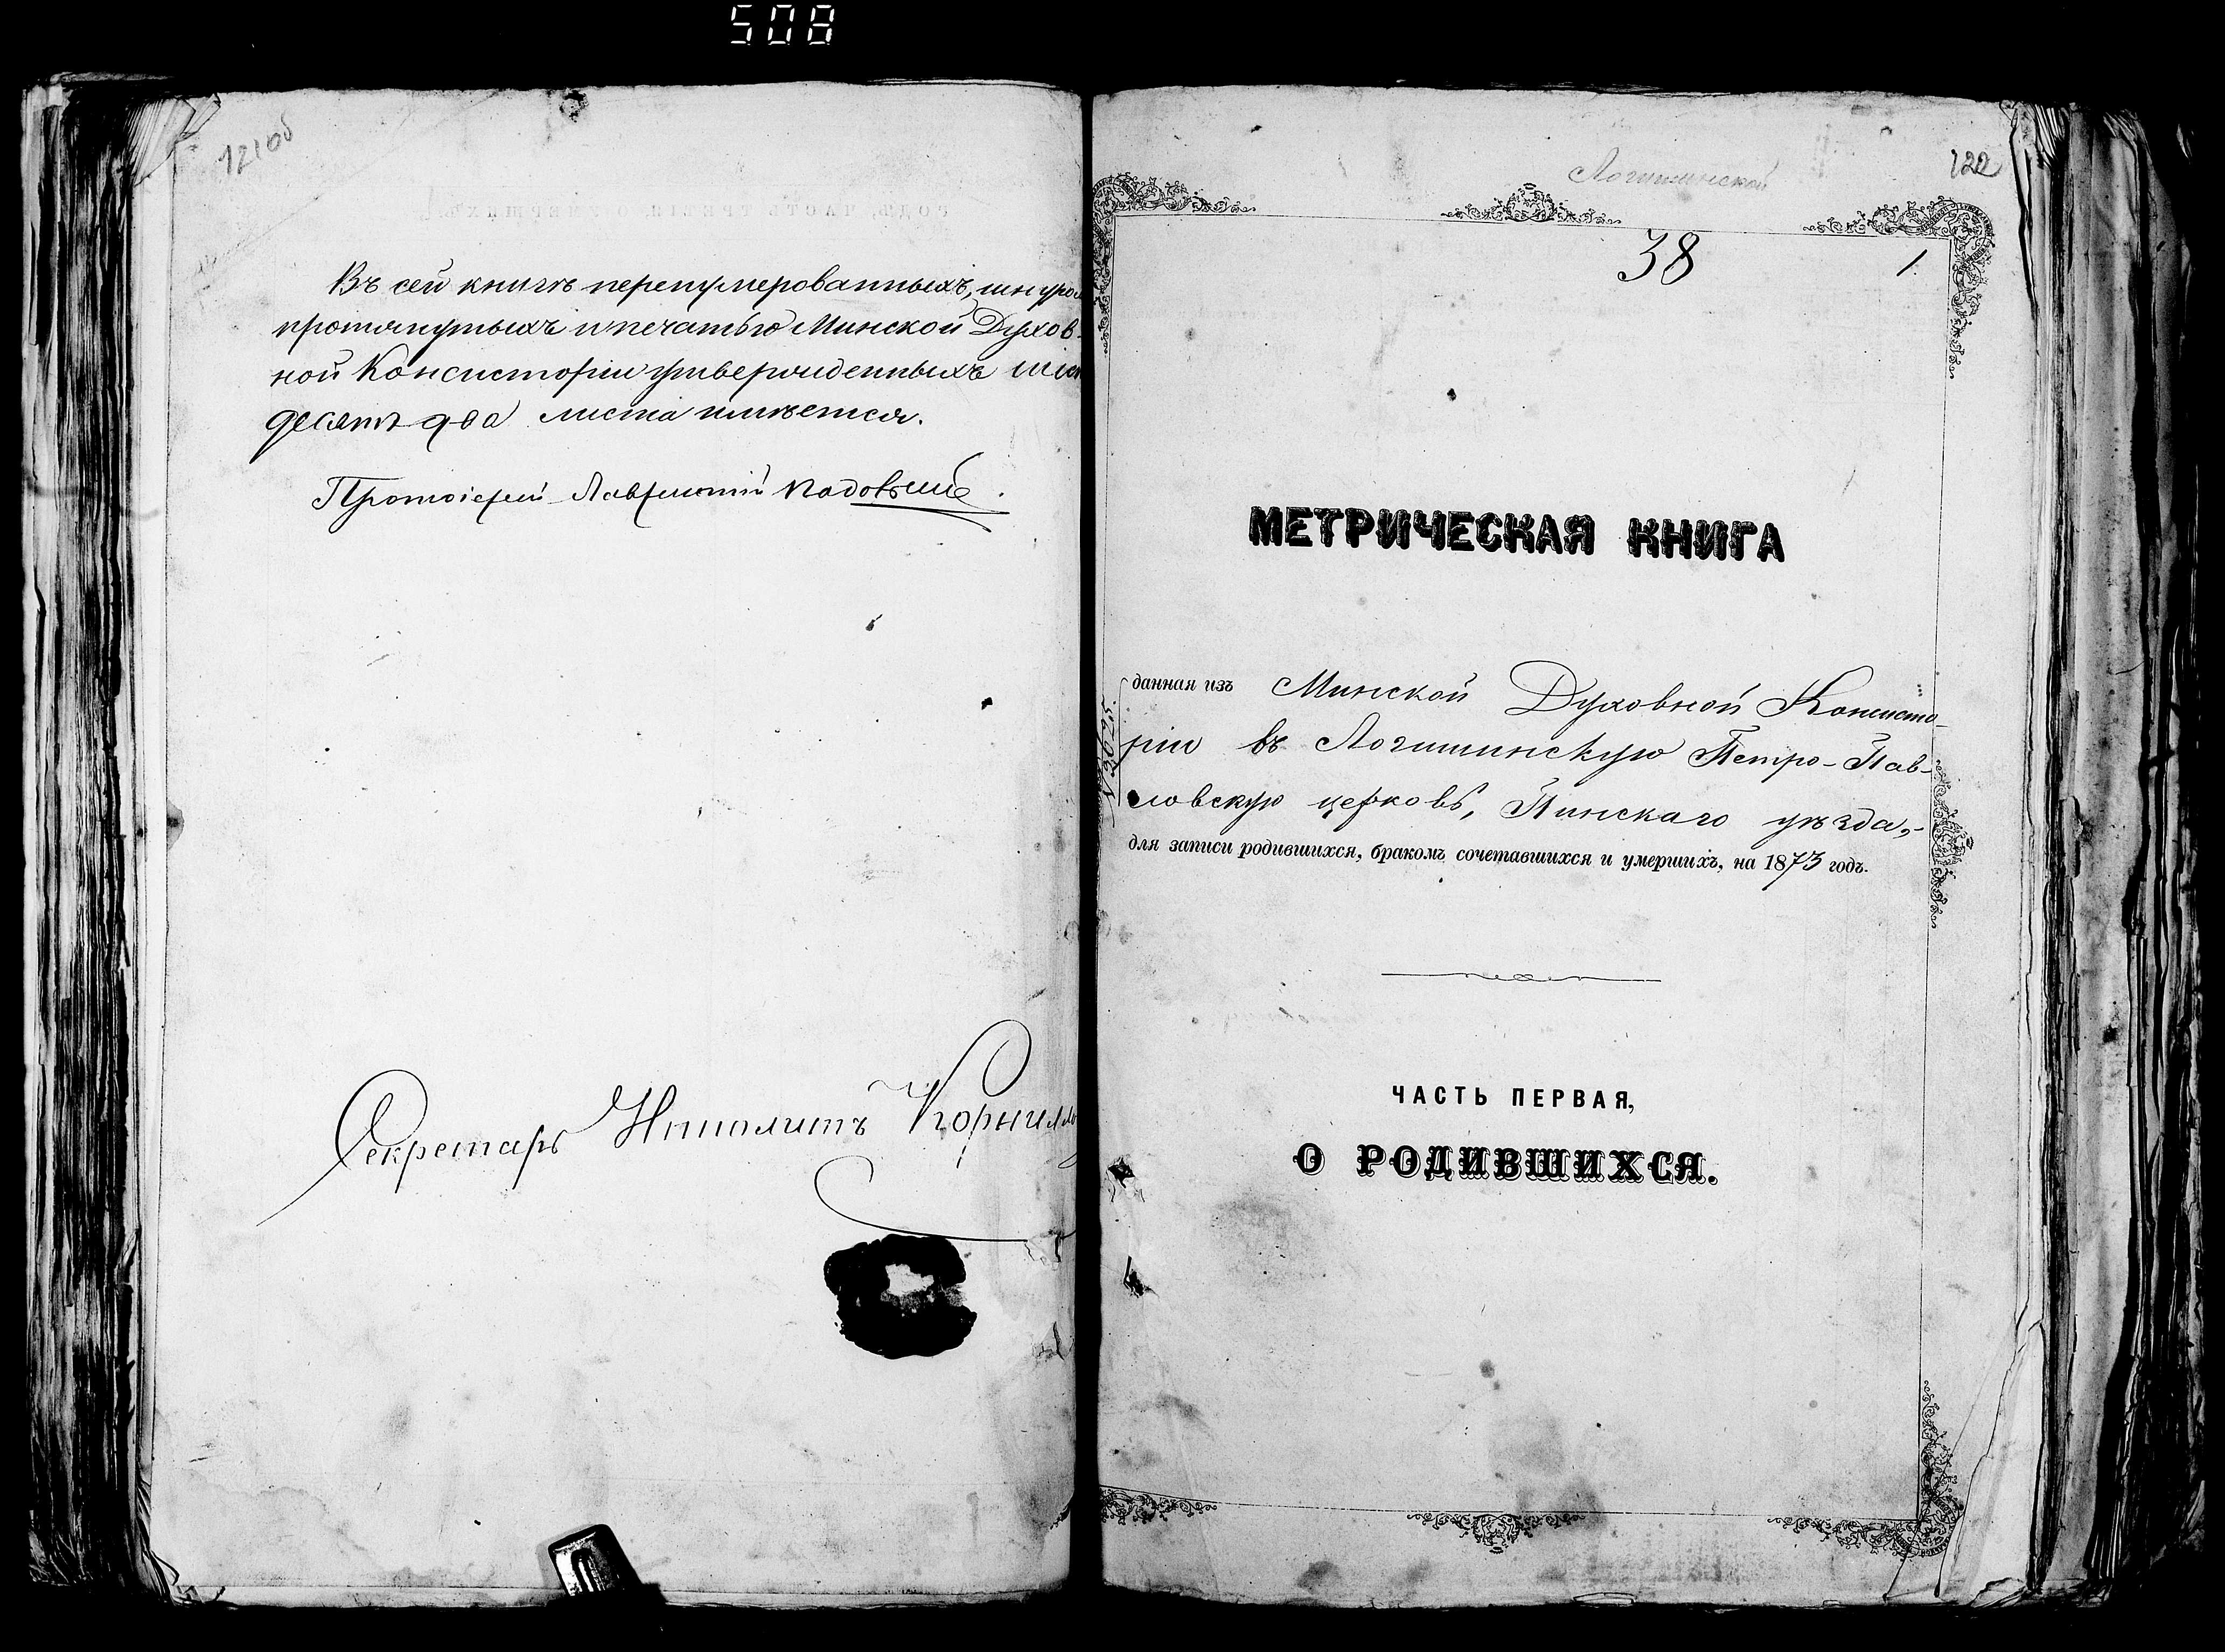 508
121об
Въ сей книгѣ перенумерованныхъ, шнуром
протянутыхъ и печатью Минской Духов-
ной Консисторіи утвержденныхъ
десятъ два листа имѣется.
Протоіерей Лаврентій
Секретарь Ипполитъ
Логишинской
122
38
1.
МЕТРИЧЕСКАЯ КНИГА
данная изъ Минской Духовной Консисто-
ріи въ Логишинскую Петро-Пав-
ловскую церковь, Пинскаго уѣзда,-
для записи родившихся, бракомъ сочетавшихся и умершихъ, на 1873 годъ.
ЧАСТЬ ПЕРВАЯ,
О РОДИВШИХСЯ.